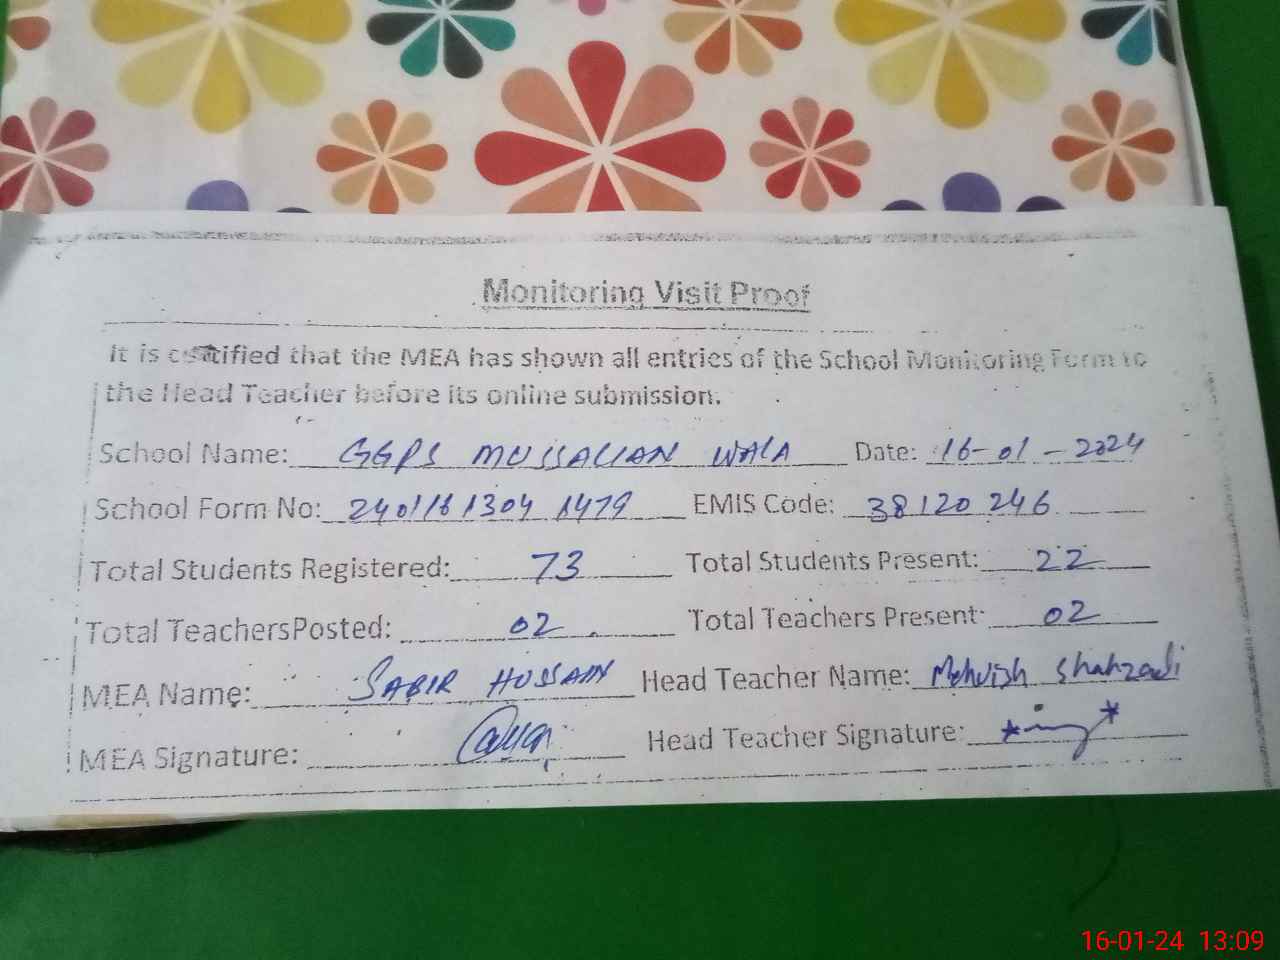 Monitoring Visit Proof
It is certified that the MEA has shown all entries of the School Monitoring Form to
the Head Teacher before its online submission.
School Name: GGPS MUSSALIAN WALA Date: 16-01-2024
School Form No: 240116 1304 1479 EMIS Code: 38120246
Total Students Registered: 73 Total Students Present: 22
Total TeachersPosted: 02 Total Teachers Present: 02
MEA Name: SABIR HUSSAIN Head Teacher Name: Mehvish Shahzadi
MEA Signature: Head Teacher Signature:
16-01-24 13:09